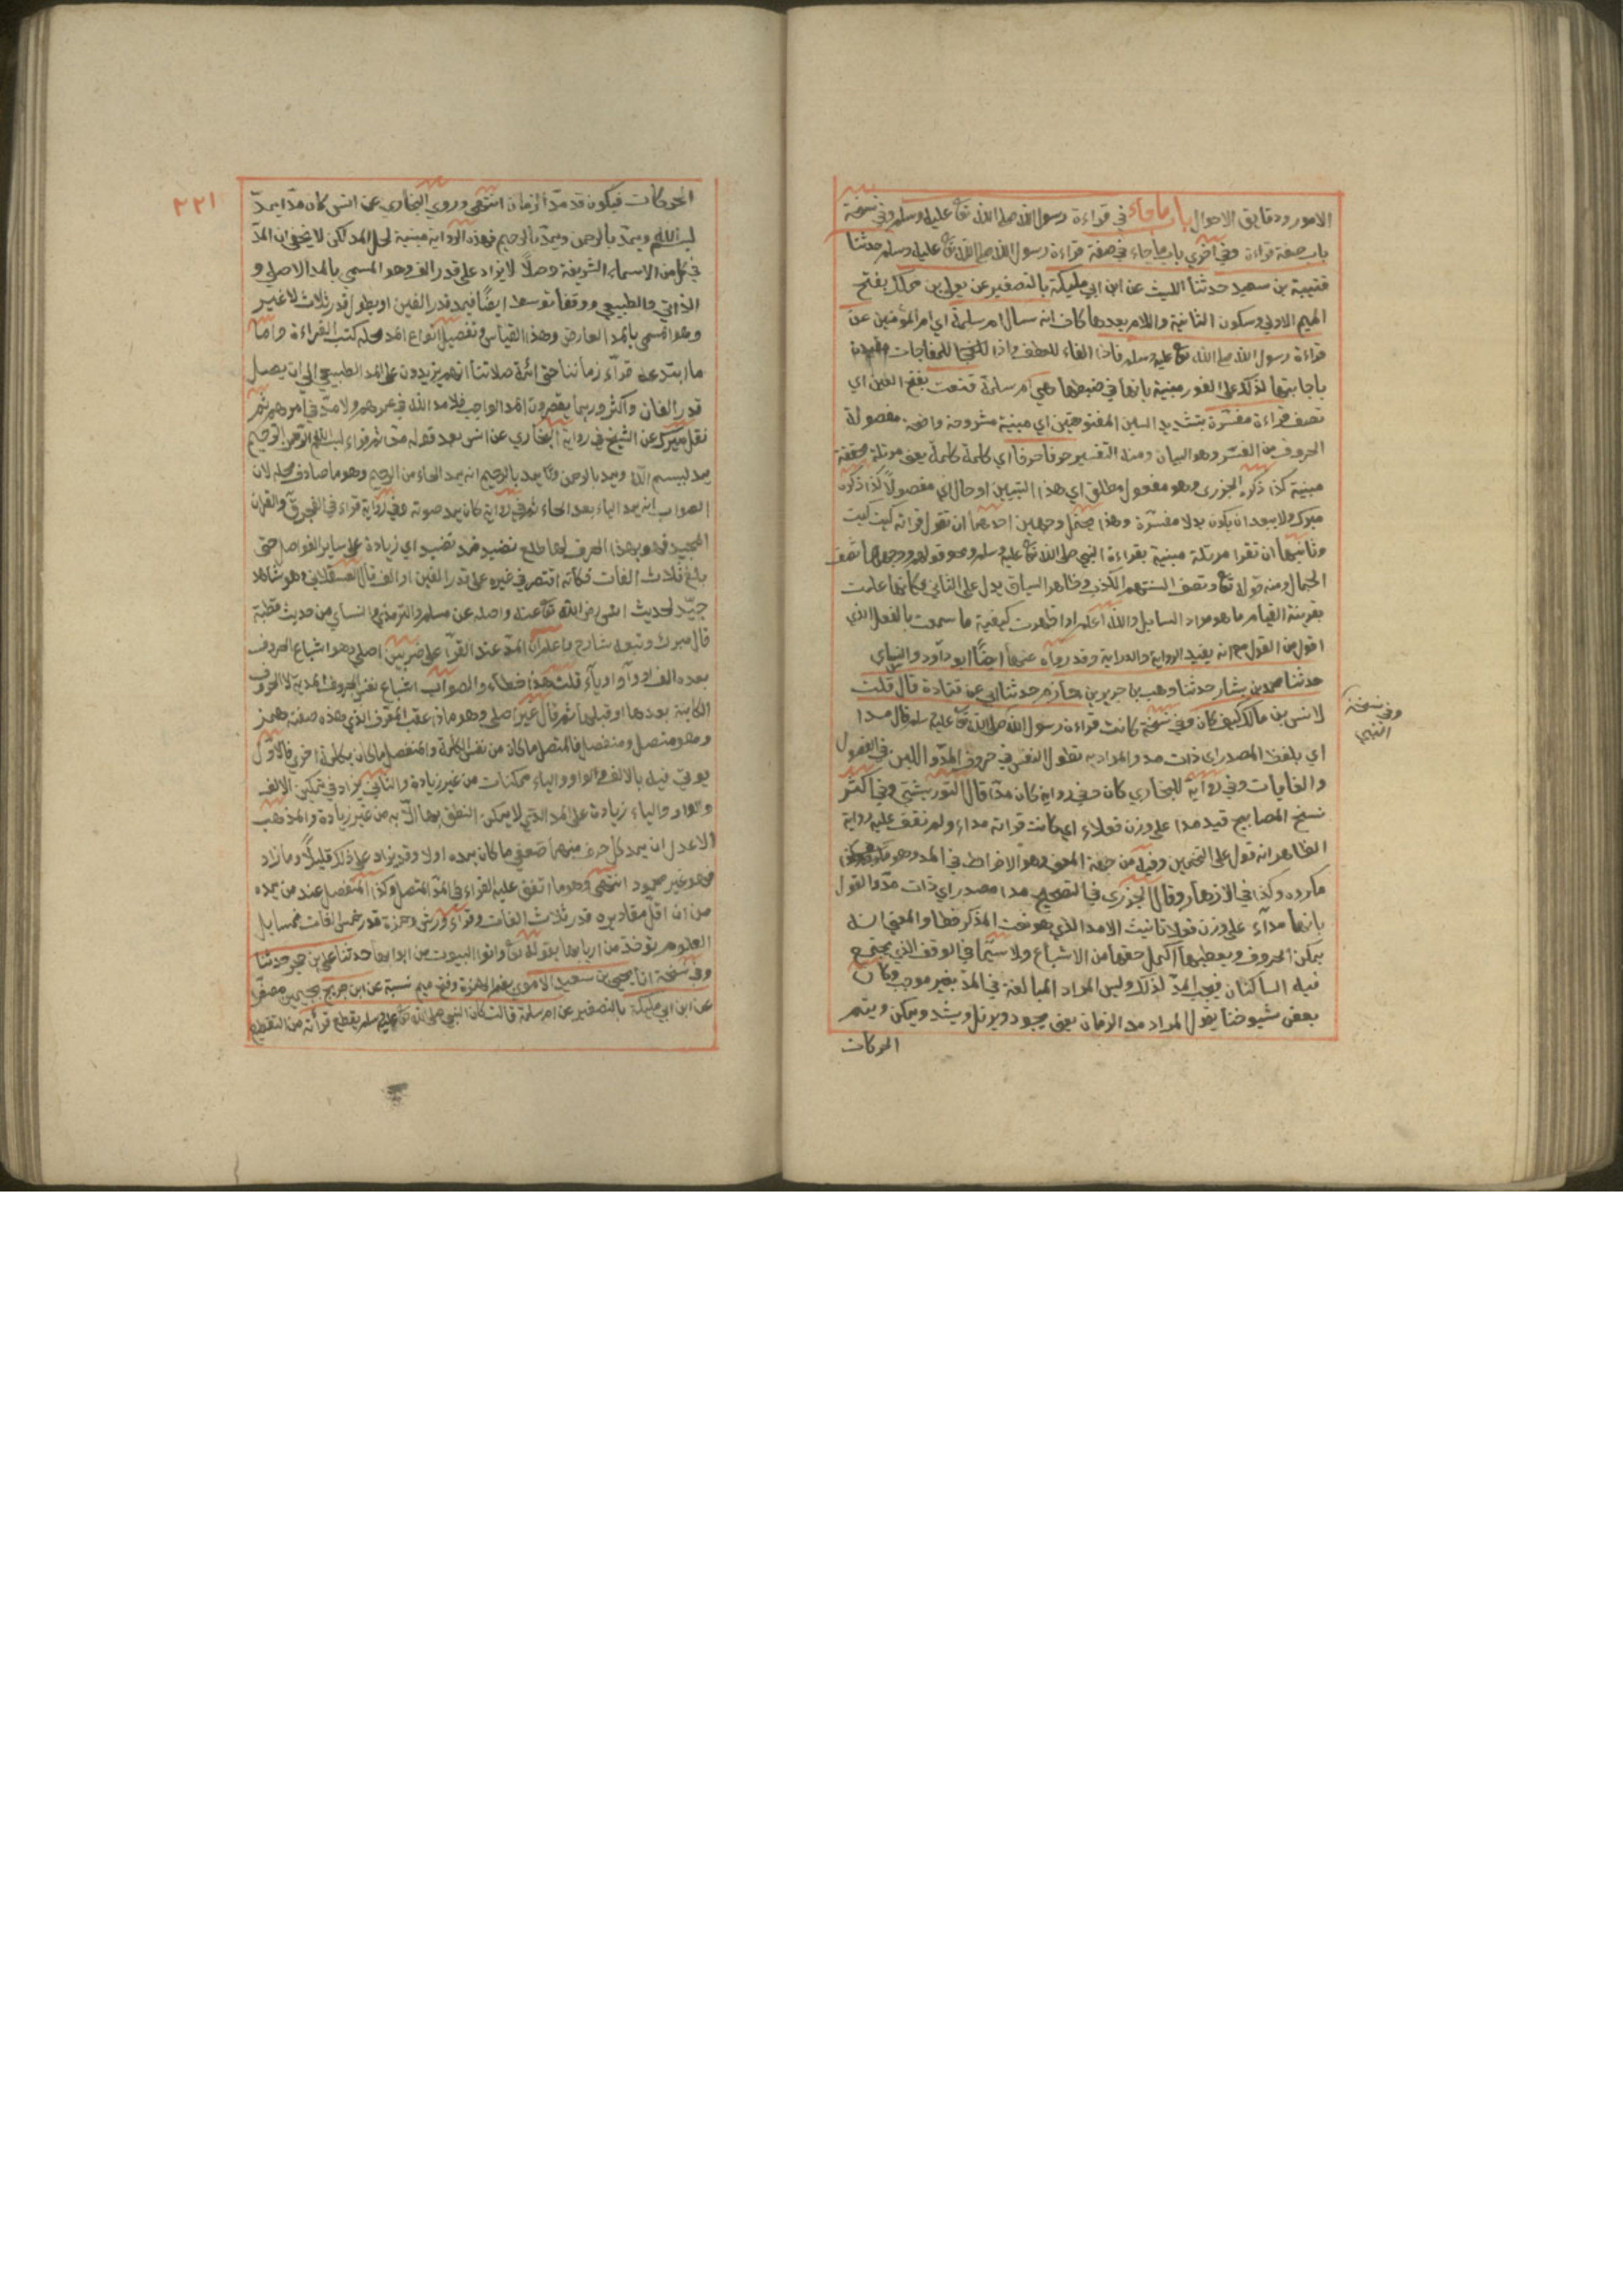 الامور ودقايق الاحوال باب ما جاء في قراءة رسول الله صلى الله تع عليه وسلم وفي نسخة
باب صفة قراءة وفي اخري باب ما جاء في صفة قراءة رسول الله صلى الله تع عليه وسلم حدثنا
قتيبة بن سعيد حدثنا الليث عن ابن ابي مليكة بالتصغير عن يعلى بن مملك بفتح
الميم الاولي وسكون الثانية واللام بعدها كاف انه سال ام سلمة اي ام المؤمنين عن
قراءة رسول الله صلى الله تع عليه وسلم فاذا الفاء للعطف واذا للمفاجات
باجابتها لذلك على الفور مبنية بانها في ضبطها هي ام سلمة تنعت بفتح العين اي
تصف قراءة مفسّرة بتشديد السين المفتوحة اي مبينة مشروحة واضحة مفصولة
الحروف من الفسر وهو البيان ومنه التفسير حرفا حرفا اي كلمة كلمة يعني مرتلة محققة
مبينة كذا ذكره الجزري وهو مفعول مطلق اي هذا التبيين او حال اي مفصولا كذا ذكره
ميرك ولا يبعد ان يكون بدلا مفسّرة وهذا يحتمل وجهين احدهما ان تقول قراته كيت كيت
وثانيهما ان تقرا مرتلة مبينة بقراءة النبي صلى الله تع عليه وسلم ونحو قولهم وجهها تصف
الجمال ومنه قوله تع وتصف السنتهم الكذب وظاهر السياق يدل على الثاني فكانها علمت
بقرينة المقام ما هو مراد السايل والله اعلم اذا ظهرت كيفية ما سمعت بالفعل الذي
اقوى من القول مع انه يفيد الرواية والدراية وقد رواه عنها ايضًا ابو داود والنساي
حدثنا محمد بن بشار حدثنا وهب بن جرير بن حازم حدثنا ابي عن قتادة قال قلت
لانس بن مالك كيف كان وفي نسخة كانت قراءة رسول الله صلى الله تع عليه وسلم قال مدا
وفي نسخة
النبي
اي بلفظ المصدر اي ذات مد والمراد به تطويل النفس في حروف المدّ واللين في الفصول
والغايات وفي رواية للبخاري كان وفي رواية كان مدّا قال التوربشتي وفي اكثر
نسخ المصابيح قيد مدا على وزن فعلاء اي كانت قراته مداء ولم نقف عليه رواية
الظاهر انه قول على التخمين وفيه من جهة المعنى وهو الافراط في المد وهو
مكروه وكذا في الازهار وقال الجزري في التصحيح مدا مصدر اي ذات مدّ والقول
بانها مدآء على وزن فعلا تانيث الامد الذي هو نعت المذكر خطا والمعني انه
يمكن الحروف ويعطيها اكمل حقها من الاشباع ولا سيّما في الوقف الذي يجتمع
فيه الساكنان فيجب المدّ لذلك وليس المراد المبالغة في المدّ بغير موجب وكان
بعض شيوخنا يقول المراد مد الزمان يعني يجود ويرتل ويشد ويمكن ويتم
الحركات
٢٢١
الحركات فيكون قد مدّ الزمان انتهى وروي البخاري عن انس كان مدّا يمدّ
لبسم الله ويمدّ بالرحمن ويمدّ بالرحيم فهذه الرواية مبينة لمحل المد لكن لا يخفى ان المدّ
في كل من الاسماء الشريفة وصلًا لا يزاد على قدر الف وهو المسمي بالمد الاصلي و
الذاتي والطبيعي ووقفا توسط ايضًا فيمد قدر الفين او يطول قدر ثلاث لا غير
وهو المسمي بالمد العارض وهذا القياس وتفصيل انواع المد محله كتب القراءة واما
ما ابتدعه قرّاء زماننا حتى ائمة صلاتنا انهم يزيدون على المد الطبيعي الي ان يصل
قدر الفان واكثر وربما يقصرون المد الواجب فلا مدّ الله في عمرهم ولا مدّ في امرهم ثم
نقل ميرك عن الشيخ في رواية البخاري عن انس بعد قوله مدّا ثم قراء بسم الله الرحمن الرحيم
يمد لبسم الله ويمد بالرحمن ويمد بالرحيم انه يمد الحاء من الرحيم وهو ما صادف محله لان
الصواب انه يمد الياء بعد الحاء ثم في رواية كان يمد صوته وفي رواية قراء في الفجر قٓ والقران
المجيد فمر بهذا الحرف لها طلع نضيد فمد نضيد اي زيادة على ساير الفواصل حتى
بلغ ثلاث الفات فكأنه اقتصر في غيره على قدر الفين او الف قال العسقلاني وهو شاهد
جيّد لحديث انس رضي الله تع عنه واصله عن مسلم والترمذي والنساي من حديث قطبة
قال ميرك وتبعه شارح واعلم ان المدّ عند القرّآء على ضربين اصلي وهو اشباع الحروف
بعده الف او واو او ياء قلت هذا خطاء والصواب اشباع نفس الحروف المدية لا الحروف
الكاينة بعدها او قبلها ثم قال غير اصلي وهو ما اذا عقب الحرف الذي هذه صفته همز
وهو متصل ومنفصل فالمتصل ما كان من نفس الكلمة والمنفصل ما كان بكلمة اخري فالاوّل
يوتى فيه بالالف والواو والياء ممكنات من غير زيادة والثاني يزاد في تمكين الالف
والواو والياء زيادة على المد التي لا يمكن النطق بها الّا به من غير زيادة والمذهب
الاعدل ان يمد كل حرف منهما ضعفي ما كان يمده اولا وقد يزاد على ذلك قليلًا وما زاد
فهو غير محمود انتهى وهو ما اتفق عليه القراء في المدّ المتصل وكذا المنفصل عند من يمده
من ان اقلّ مقاديره قدر ثلاث الفات وقراء ورش وحمزة قدر خمس الفات فمسايل
العلوم توخذ من اربابها بقوله تع واتوا البيوت من ابوابها حدثنا علي بن حجر حدثنا
وفي نسخة انا يحيى بن سعيد الاموي بضم الهمزة وفتح ميم نسبة عن ابن جريج بجيمين مصغرا
عن ابن ابي مليكة بالتصغير عن ام سلمة قالت كان النبي صلى الله تع عليه وسلم يقطع قرأته من التقطيع